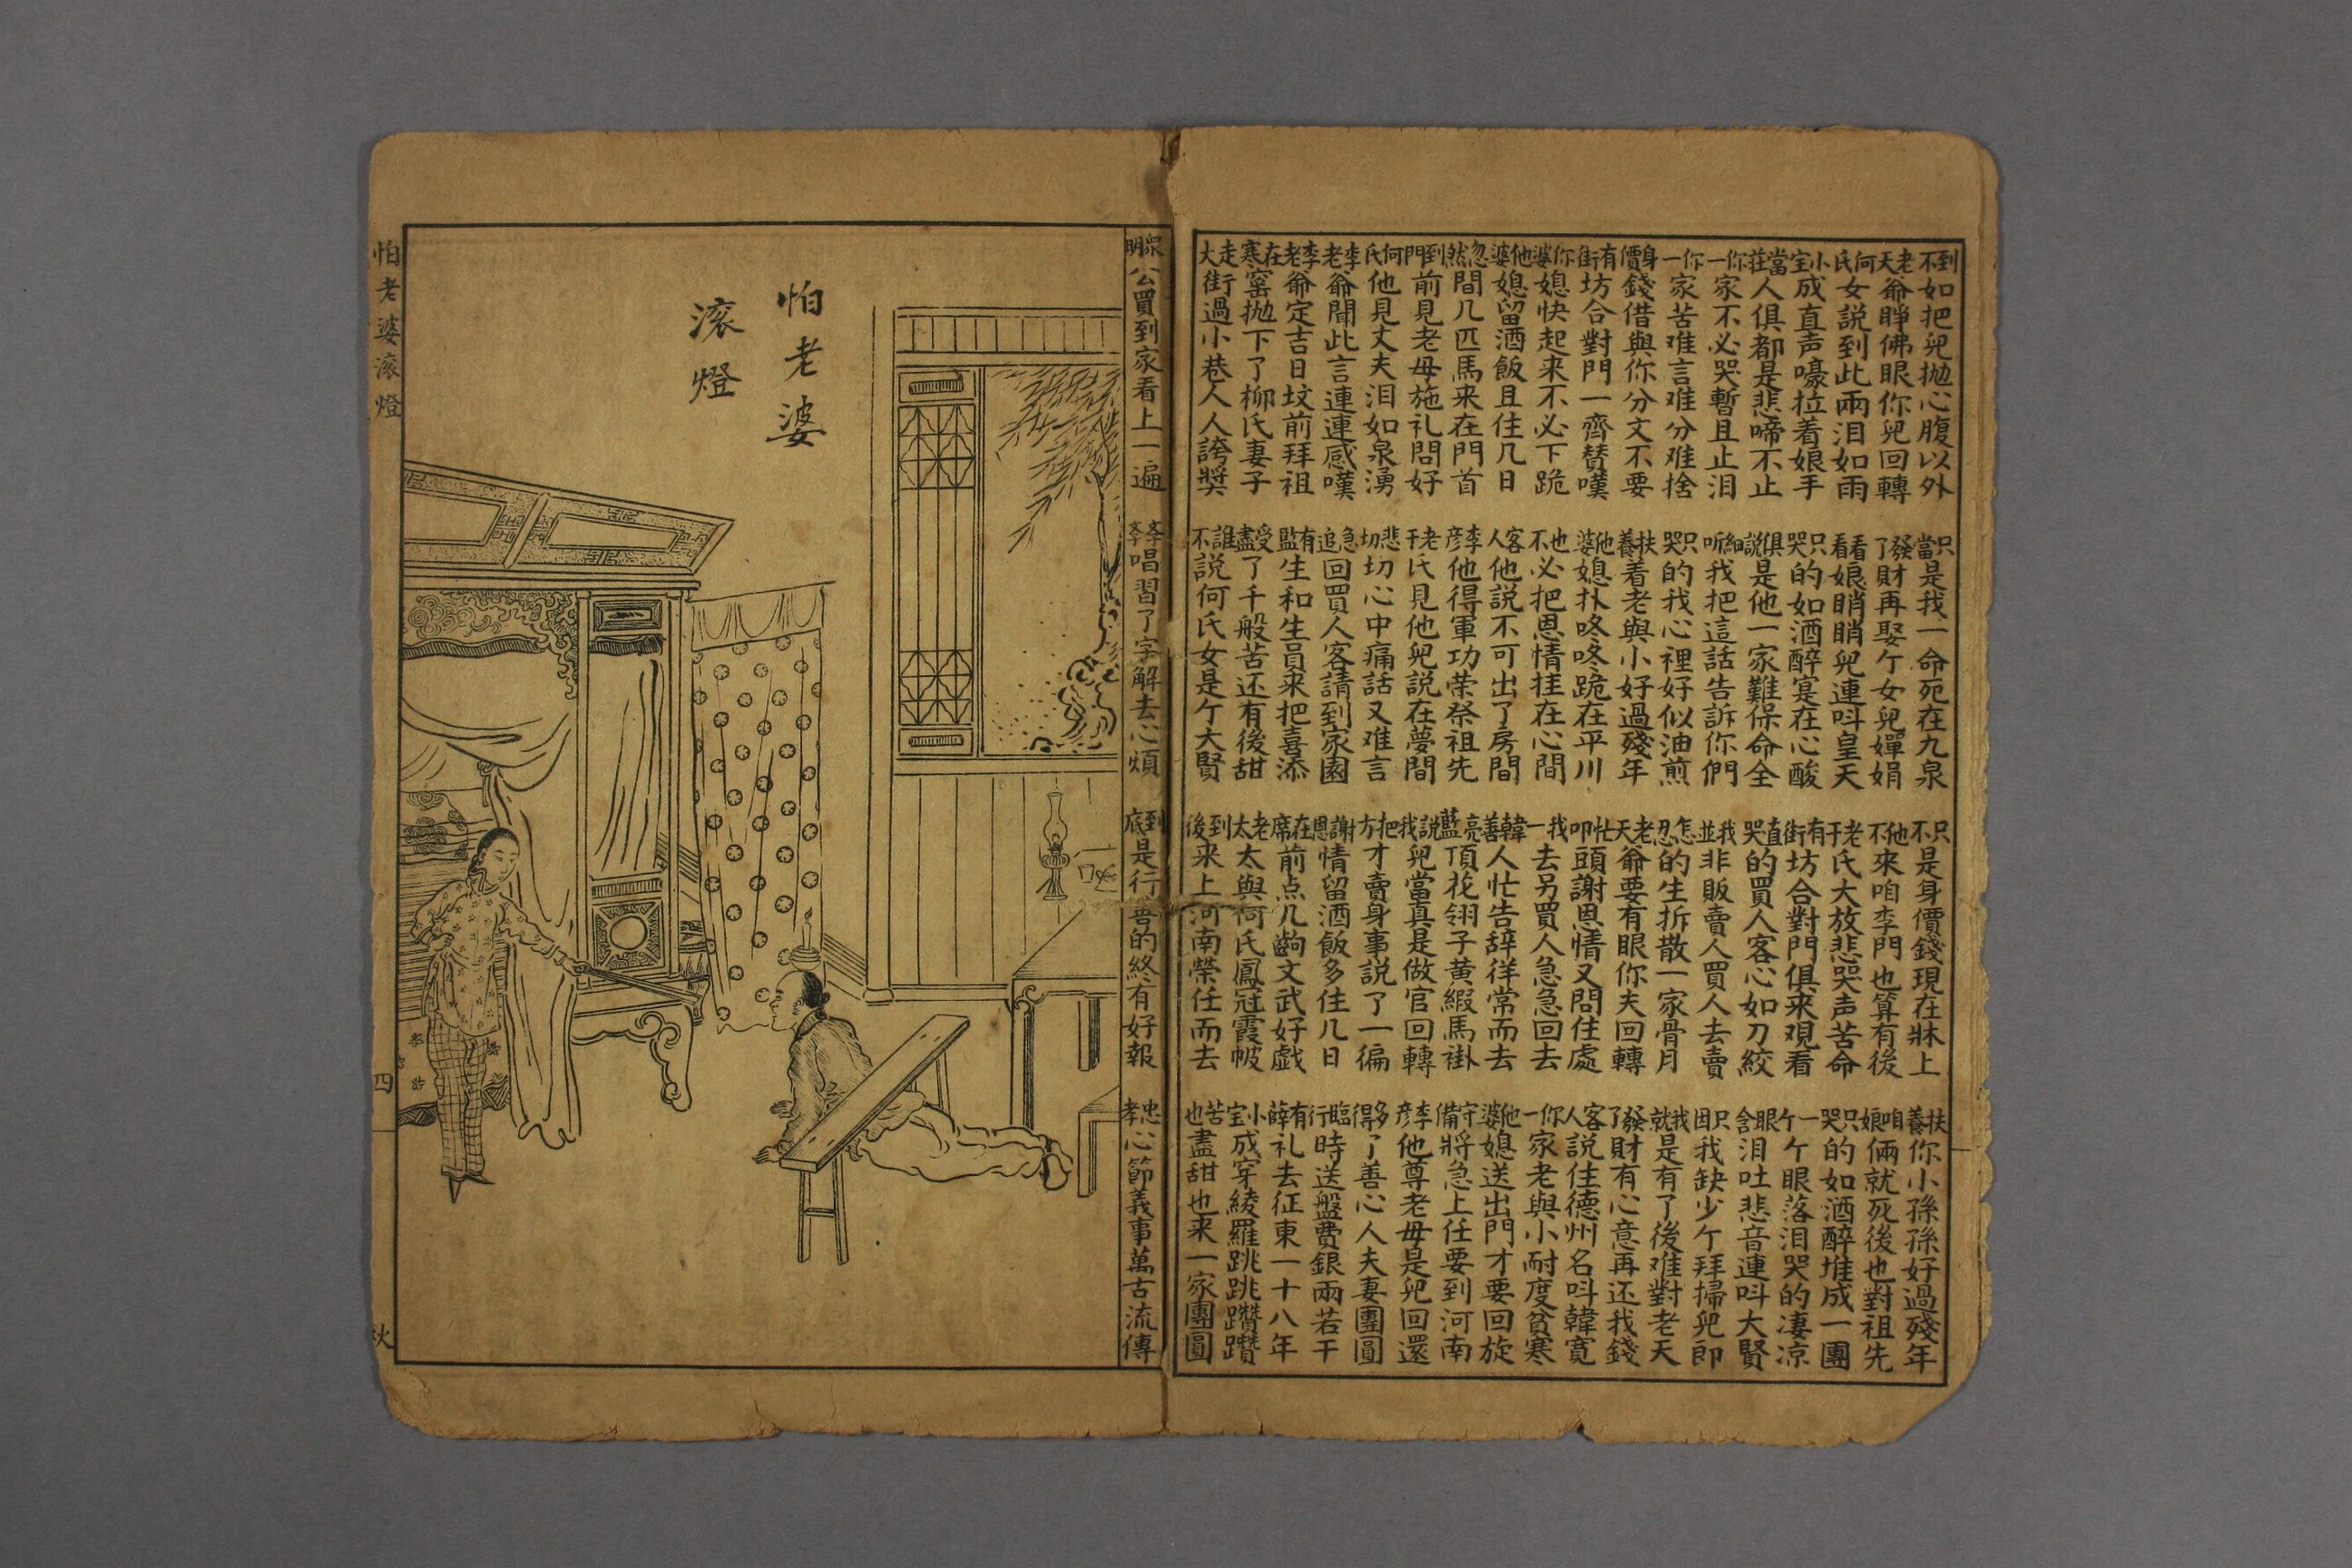 到不如把兒拋心腹以外 只當是我一命宛在九泉 只不是身價錢現在牀上 扶養你小孫孫好過殘年
老天爺睜佛眼你兒回轉 發了財再娶亇女兒嬋娟 他不來咱李門也算有後 咱娘倆就死後也對祖先
何氏女説到此兩泪如雨 看看娘睄睄兒連呌皇天 老于氏大放悲哭声苦命 只哭的如酒醉堆成一團
小宝成直声嚎拉着娘手 只哭的如酒醉寔在心酸 有街坊合對門俱来观看 一亇亇眼落泪哭的凄凉
當莊人俱都是悲啼不止 俱説是他一家難保命全 直哭的買人客心如刀絞 眼含泪吐悲音連呌大賢
你一家不必哭暫且止泪 細听我把這話告訴你們 我並非販賣人買人去賣 只因我缺少亇拜掃兒郎
你一家苦难言难分难捨 只哭的我心裡好似油煎 怎忍的生拆散一家骨月 我就是有了後难對老天
身價錢借與你分文不要 扶養着老與小好過殘年 老天爺要有眼你夫回轉 發了財有心意再还我錢
有街坊合對門一齊賛嘆 他婆媳扑咚咚跪在平川 忙叩頭謝恩情又問住處 客人説住德州名呌韓寬
你婆媳快起来不必下跪 也不必把恩情挂在心間 我一去另買人急急回去 你一家老與小耐度貧寒
他婆媳留酒飯且住几日 客人他説不可出了房間 韓善人忙告辞徉常而去 他婆媳送出門才要回旋
忽然間几匹馬来在門首 李彦他得軍功荣祭祖先 亮藍頂花翎子黄緞馬褂 守備將急上任要到河南
到門前見老母施礼問好 老于氏見他兒説在夢間 説我兒當真是做官回轉 李彦他尊老母是兒回還
何氏他見丈夫泪如泉湧 悲切切心中痛話又难言 把方才賣身事説了一徧 多得了善心人夫妻團圓
李老爺聞此言連連感嘆 急追回買人客請到家園 謝恩情留酒飯多住几日 臨行時送盤費銀兩若干
李老爺定吉日坟前拜祖 有監生和生員来把喜添 在席前点几齣文武好戯 有薛礼去征東一十八年
在寒窰拋下了柳氏妻子 受盡了千般苦还有後甜 老太太與何氏鳳冠霞帔 小宝成穿綾羅跳跳躦躦
走大街過小巷人人誇奬 誰不説何氏女是亇大賢 到後来上河南榮任而去 苦盡甜也来一家團圓
眾明公買到家看上一遍 唱習了字解去心煩 到底是行善的終有好報 忠孝心節義事萬古流傳
怕老婆
滚燈
怕老婆滚燈
四